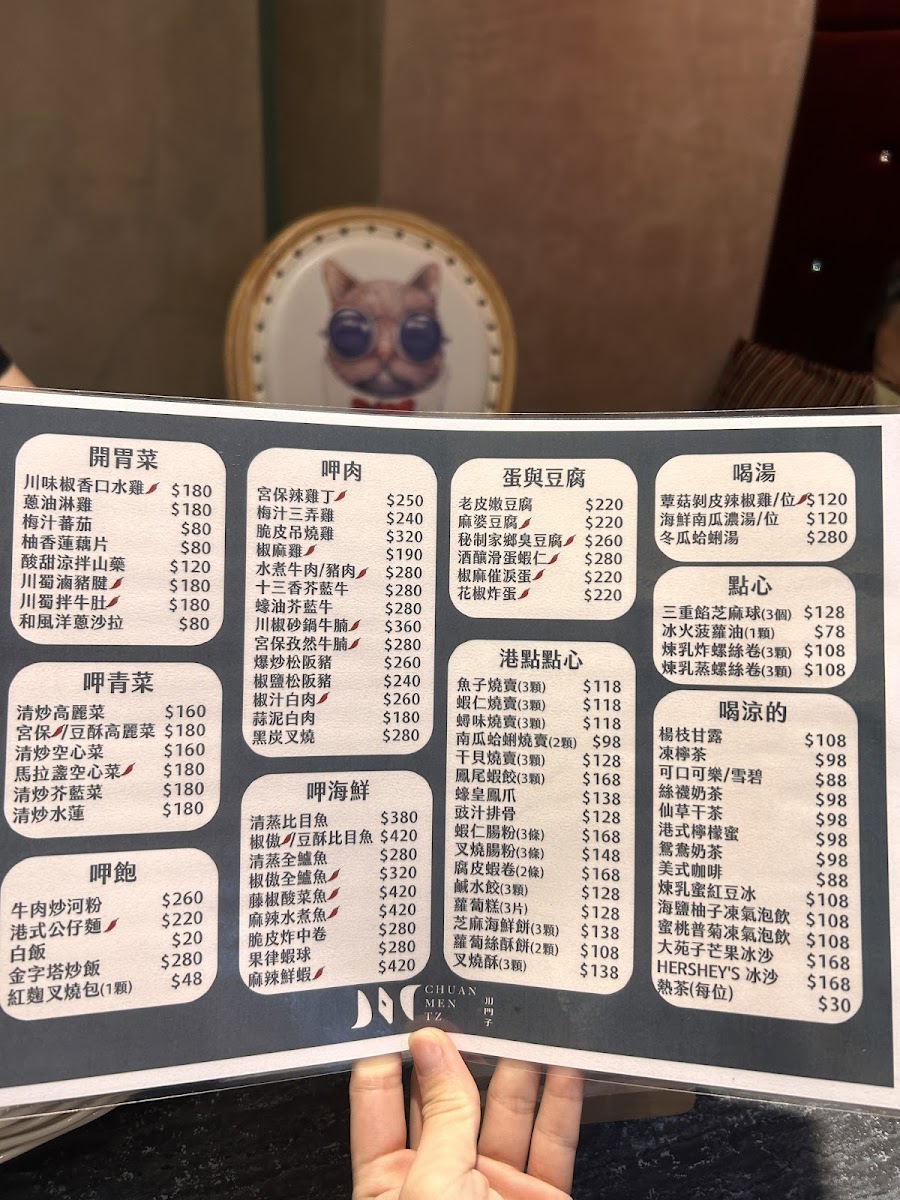 開胃菜
川味椒香口水雞 $180
蔥油淋雞 $180
梅汁蕃茄 $80
柚香蓮藕片 $80
酸甜涼拌山藥 $120
川蜀滷豬腱 $180
川蜀拌牛肚 $180
和風洋蔥沙拉 $80
呷青菜
清炒高麗菜 $160
宮保/豆酥高麗菜 $180
清炒空心菜 $160
馬拉盞空心菜 $180
清炒芥藍菜 $180
清炒水蓮 $180
呷飽
牛肉炒河粉 $260
港式公仔麵 $220
白飯 $20
金字塔炒飯 $280
紅麴叉燒包(1顆) $48
呷肉
宮保辣雞丁 $250
梅汁三弄雞 $240
脆皮吊燒雞 $320
椒麻雞 $190
水煮牛肉/豬肉 $280
十三香芥藍牛 $280
蠔油芥藍牛 $280
川椒砂鍋牛腩 $360
宮保孜然牛腩 $280
爆炒松阪豬 $260
椒鹽松阪豬 $240
椒汁白肉 $260
蒜泥白肉 $180
黑炭叉燒 $280
呷海鮮
清蒸比目魚 $380
椒傲/豆酥比目魚 $420
清蒸全鱸魚 $280
椒傲全鱸魚 $320
藤椒酸菜魚 $420
麻辣水煮魚 $420
脆皮炸中卷 $280
果律蝦球 $280
麻辣鮮蝦 $420
蛋與豆腐
老皮嫩豆腐 $220
麻婆豆腐 $220
秘制家鄉臭豆腐 $260
酒釀滑蛋蝦仁 $280
椒麻催淚蛋 $220
花椒炸蛋 $220
港點點心
魚子燒賣(3顆) $118
蝦仁燒賣(3顆) $118
蟳味燒賣(3顆) $118
南瓜蛤蜊燒賣(2顆) $98
干貝燒賣(3顆) $128
鳳尾蝦餃(3顆) $168
蠔皇鳳爪 $138
豉汁排骨 $128
蝦仁腸粉(3條) $168
叉燒腸粉(3條) $148
腐皮蝦卷(2條) $168
鹹水餃(3顆) $128
蘿蔔糕(3片) $128
芝麻海鮮餅(3顆) $138
蘿蔔絲酥餅(2顆) $108
叉燒酥(3顆) $138
喝湯
蕈菇剝皮辣椒雞/位 $120
海鮮南瓜濃湯/位 $120
冬瓜蛤蜊湯 $280
點心
三重餡芝麻球(3個) $128
冰火菠蘿油(1顆) $78
煉乳炸螺絲卷(3顆) $108
煉乳蒸螺絲卷(3顆) $108
喝涼的
楊枝甘露 $108
凍檸茶 $98
可口可樂/雪碧 $88
絲襪奶茶 $98
仙草干茶 $98
港式檸檬蜜 $98
鴛鴦奶茶 $98
美式咖啡 $88
煉乳蜜紅豆冰 $108
海鹽柚子凍氣泡飲 $108
蜜桃普菊凍氣泡飲 $108
大苑子芒果冰沙 $168
HERSHEY'S 冰沙 $168
熱茶(每位) $30
CHUAN
MEN
TZ
川門子